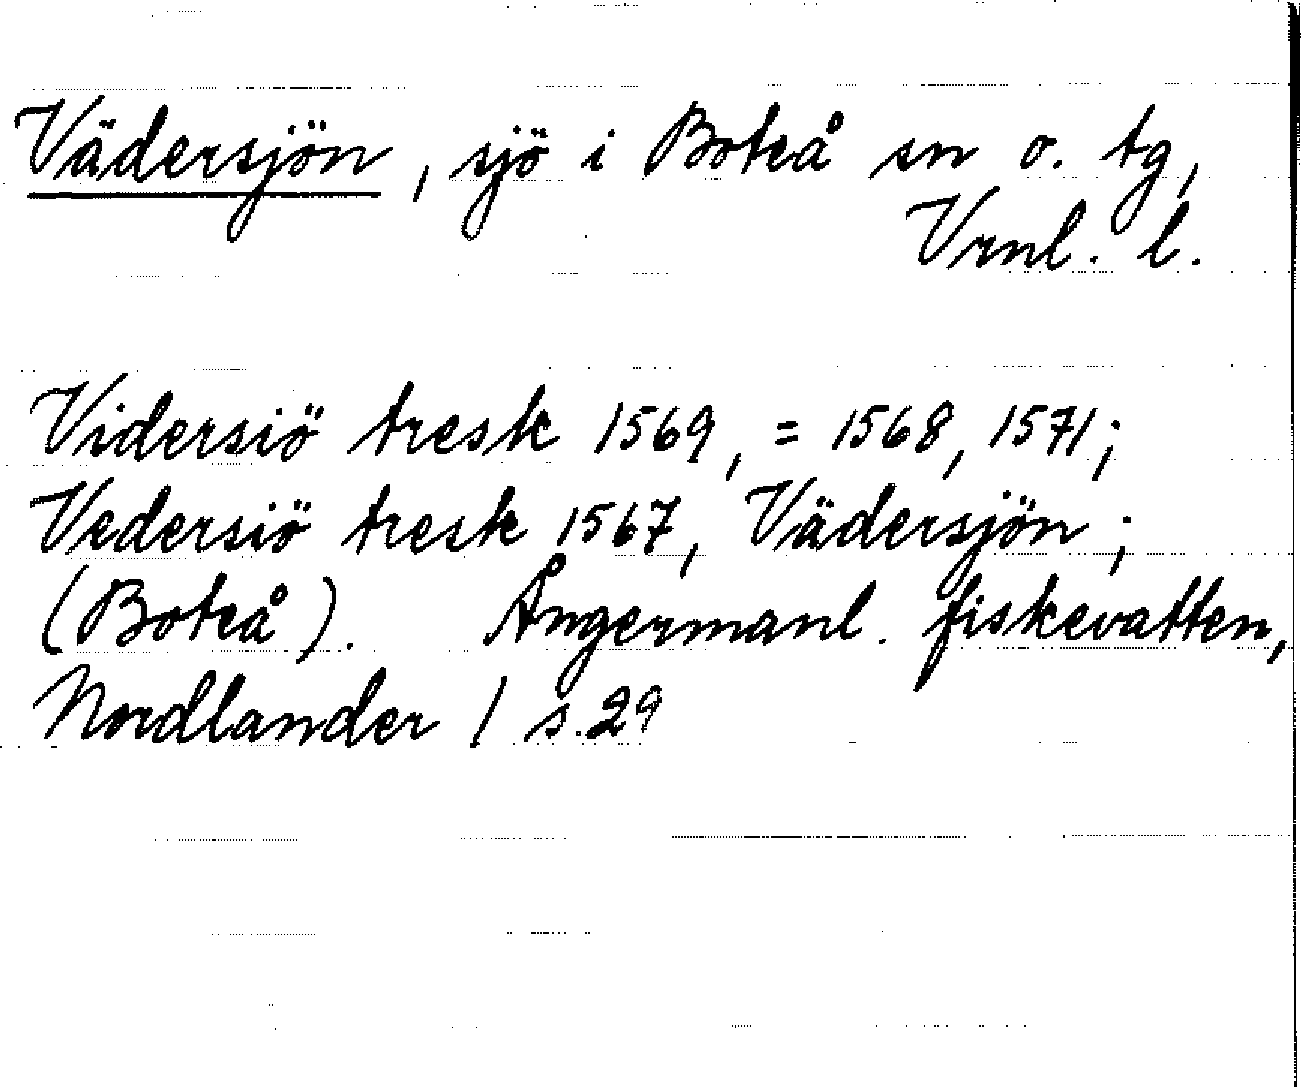 Vädersjön, sjö i Boteå sn o. tg,
Vrnl. l.
Vidersiö tresk 1569, = 1568, 1571;
Vedersiö tresk 1567, Vädersjön;
(Boteå). Ångermanl. fiskevatten,
Nordlander / s. 29